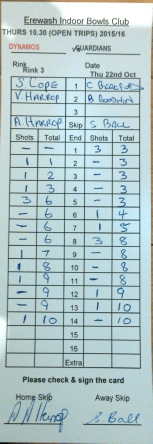 Erewash Indoor Bowls Club
THURS 10.30 (OPEN TRIPS) 2015/16
DYNAMOS VS GUARDIANS
Rink Date
Rink 3 Thu 22nd Oct
J. COPE 1 C
V. HARROP 2 B
A. HARROP Skip S BALL
Shots Total End Shots Total
- - 1 3 3
1 1 2 - 3
1 2 3 - 3
1 3 4 - 3
3 6 5 - 3
- 6 6 1 4
- 6 7 1 5
- 6 8 3 8
1 7 9 - 8
1 8 10 - 8
1 9 11 - 8
- 9 12 1 9
- 9 13 1 10
1 10 14 - 10
15
16
Extra
Please check & sign the card
Home Skip Away Skip
A Harrop S. Ball